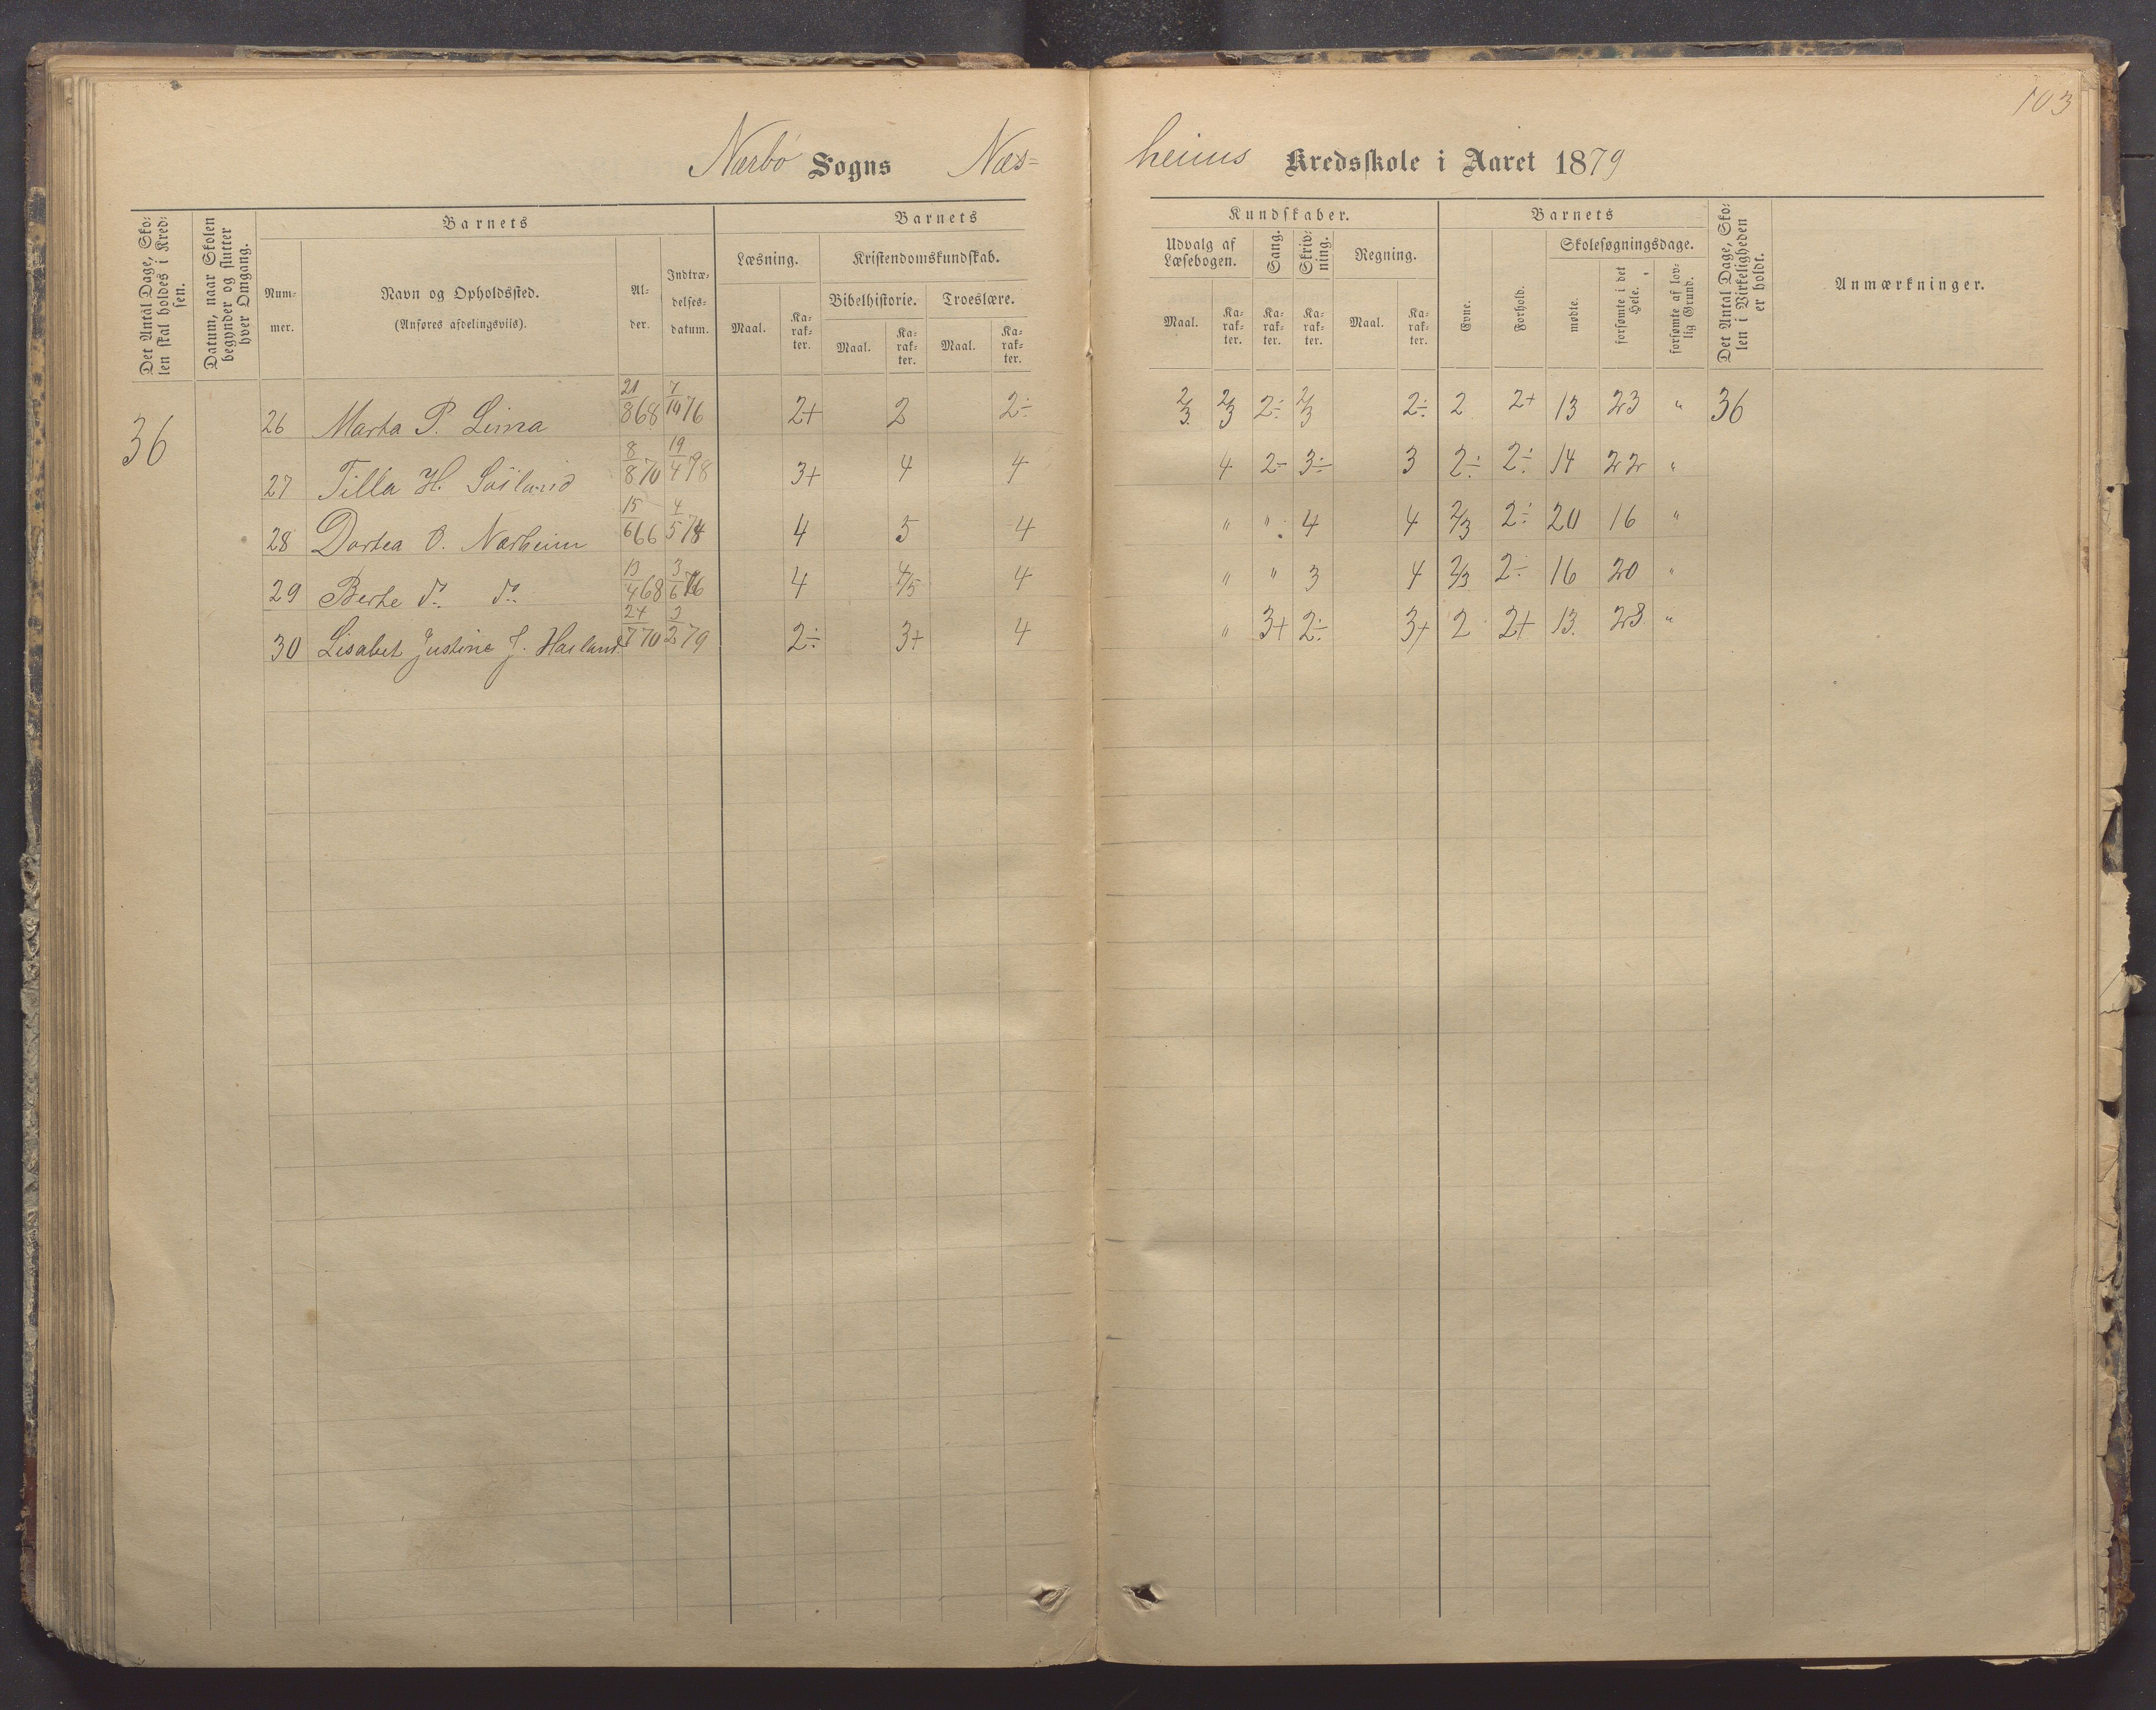 103
Nærbø Sogns Næs=
heims Kredsskole i Aaret 1879
Det Antal Dage, Sko-
len skal holdes i Kred-
sen.
Datum, naar Skolen
begynder og slutter
hver Omgang.
Barnets
Num-
mer.
Navn og Opholdssted.
(Anføres afdelingsviis).
Al-
der.
Indtræ-
delses-
datum.
Barnets
Læsning.
Maal.
Ka-
rak-
ter.
Kristendomskundskab.
Bibelhistorie.
Maal.
Ka-
rak-
ter.
Troeslære.
Maal.
Ka-
rak-
ter.
Kundskaber.
Udvalg af
Læsebogen.
Maal.
Ka-
rak-
ter.
Sang.
Ka-
rak-
ter.
Skriv-
ning.
Ka-
rak-
ter.
Regning.
Maal.
Ka-
rak-
ter.
Barnets
Evne.
Forhold.
Skolesøgningsdage.
mødte.
forsømte i det
Hele.
forsømte af lov-
lig Grund.
Det Antal Dage, Sko-
len i Virkeligheden
er holdt.
Anmærkninger.
36
26 Marta P. Lima 21/8 68 7/10 76 2+ 2 2÷ 2/3 2/3 2÷ 2/3 2÷ 2 2+ 13 23 " 36
27 Tilla H. 8/8 70 19/4 78 3+ 4 4 4 2÷ 3÷ 3 2÷ 2÷ 14 22 "
28 Dortea O. Næsheim 15/6 66 4/5 74 4 5 4 " " 4 4 2/3 2÷ 20 16 "
29 Berte do do 13/4 68 3/6 76 4 4/5 4 " " 3 4 2/3 2÷ 16 20 "
30 Lisabet Justine J. Hasland 24/7 70 3/2 79 2÷ 3+ 4 " 3+ 2÷ 3+ 2 2+ 13 23 "